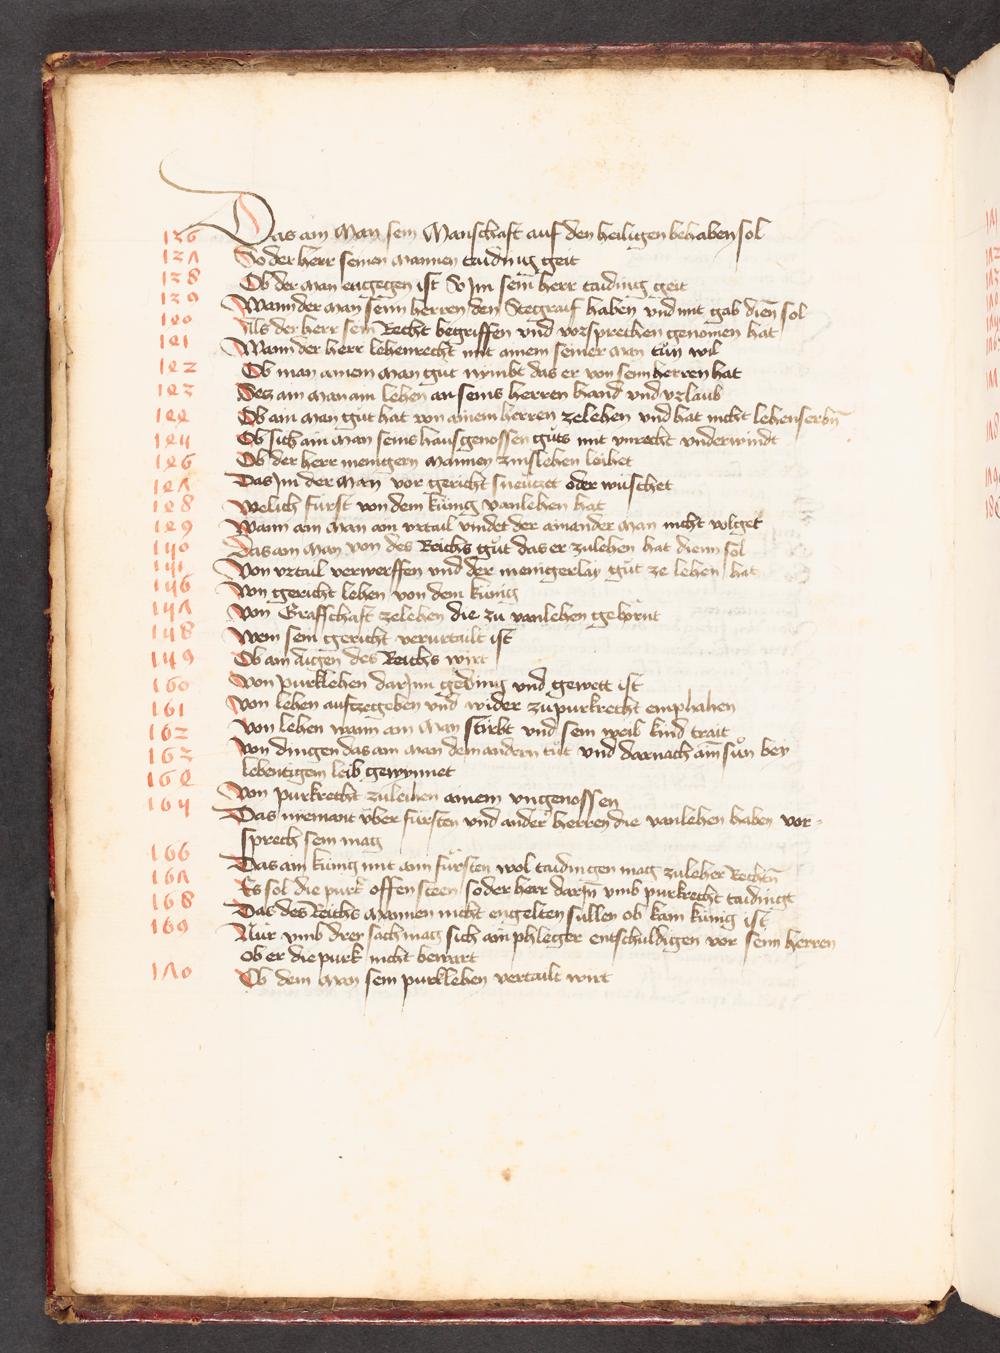 136 Das ain Man sein Manschaft auf den heiligen behaben sol
137 So der herr seinen Mannen taiding geit
138 Ob der Man engegen ist So Im sein herr taiding geit
139 Wann der Man seim herren den Stegraif haben und mit gab dien̄ sol
140 Als der herr sein Recht begriffen und vorsprechen genomen hat
141 Wann der herr lehenrecht mit ainem seiner Man tůn wil
142 Ob man ainem Man gut nymbt das er von seim herren hat
143 Des ain Man ain lehen an seins herren hand und vrlaub
144 Ob ain Man gůt hat von ainem herren zelehen und hat nicht lehenserbn̄
145 Ob sich ain Man seins hausgenossen gůts mit vnrecht vnderwindt
146 Ob der herr menigern Mannen zinslehen leihet
147 Das Im der Man vor gericht sneutzet oder wuschet
148 Welich fürst von dem künig vanlehen hat
149 Wann ain Man ain vrtail vindet der ainander Man nicht volget
150 Das ain Man von des Reichs gůt das er zulehen hat dienn sol
151 Von vrtail verwerffen und der menigerlay gůt ze lehen hat
156 Von gericht lehen von dem künig
157 Von Graffschaft zelehen die zu vanlehen gehörnt
158 Wem sein gericht verurtailt ist
159 Ob ain aigen des Reichs wirt
160 Von purklehen dar Inn geding und gewett ist
161 Von lehen aufzegeben und wider zu purkrecht emphahen
162 Von lehen wann ain Man stirbt und sein weib kind trait
163 Von dingen das ain Man dem andern tůt und darnach ain sůn bey
lebentigem leib gewynnet
164 Von purkrecht zuleihen ainem vngenossen
165 Das nyemant über fürsten und ander herren die vanlehen haben vor-
sprech sein mag
166 Das ain künig mit ain fürsten wol taidingen mag zu leher Rechtn̄
167 Es sol die purk offen steen so der herr darIn̄ vmb purkrecht taidingt
168 Das des Reichs Mannen nicht engelten sullen ob kain künig ist
169 Nur vmb drey sach mag sich ain phleger entschuldigen vor seim herren
ob er die purk nicht bewart
170 Ob dem Man sein purklehen vertailt wirt